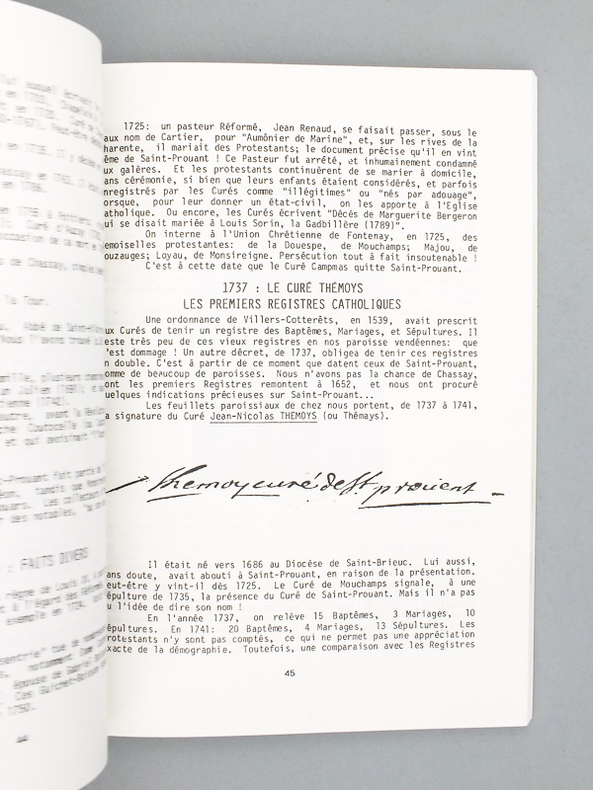 1725: un pasteur Réformé, Jean Renaud, se faisait passer, sous le
aux nom de Cartier, pour "Aumônier de Marine", et, sur les rives de la
harente, il mariait des Protestants; le document précise qu'il en vint
ême de Saint-Prouant ! Ce Pasteur fut arrêté, et inhumainement condamné
ux galères. Et les protestants continuèrent de se marier à domicile,
ans cérémonie, si bien que leurs enfants étaient considérés, et parfois
nregistrés par les Curés comme "illégitimes" ou "nés par adouage",
orsque, pour leur donner un état-civil, on les apporte à l'Eglise
atholique. Ou encore, les Curés écrivent "Décès de Marguerite Bergeron
ui se disait mariée à Louis Sorin, la Gadbillère (1789)".
On interne à l'Union Chrétienne de Fontenay, en 1725, des
emoiselles protestantes: de la Douespe, de Mouchamps; Majou, de
ouzauges; Loyau, de Monsireigne. Persécution tout à fait insoutenable !
C'est à cette date que le Curé Campmas quitte Saint-Prouant.
1737 : LE CURÉ THÉMOYS
LES PREMIERS REGISTRES CATHOLIQUES
Une ordonnance de Villers-Cotterêts, en 1539, avait prescrit
ux Curés de tenir un registre des Baptêmes, Mariages, et Sépultures. Il
este très peu de ces vieux registres en nos paroisse vendéennes: que
'est dommage ! Un autre décret, de 1737, obligea de tenir ces registres
n double. C'est à partir de ce moment que datent ceux de Saint-Prouant,
omme de beaucoup de paroisses. Nous n'avons pas la chance de Chassay,
ont les premiers Registres remontent à 1652, et nous ont procuré
uelques indications précieuses sur Saint-Prouant...
Les feuillets paroissiaux de chez nous portent, de 1737 à 1741,
a signature du Curé Jean-Nicolas THEMOYS (ou Thémays).
themoy curé de St prouent
Il était né vers 1686 au Diocèse de Saint-Brieuc. Lui aussi,
ans doute, avait abouti à Saint-Prouant, en raison de la présentation.
eut-être y vint-il dès 1725. Le Curé de Mouchamps signale, à une
épulture de 1735, la présence du Curé de Saint-Prouant. Mais il n'a pas
u l'idée de dire son nom !
En l'année 1737, on relève 15 Baptêmes, 3 Mariages, 10
épultures. En 1741: 20 Baptêmes, 4 Mariages, 13 Sépultures. Les
rotestants n'y sont pas comptés, ce qui ne permet pas une appréciation
xacte de la démographie. Toutefois, une comparaison avec les Registres
45
la Tour.
: FAITS DIVERS